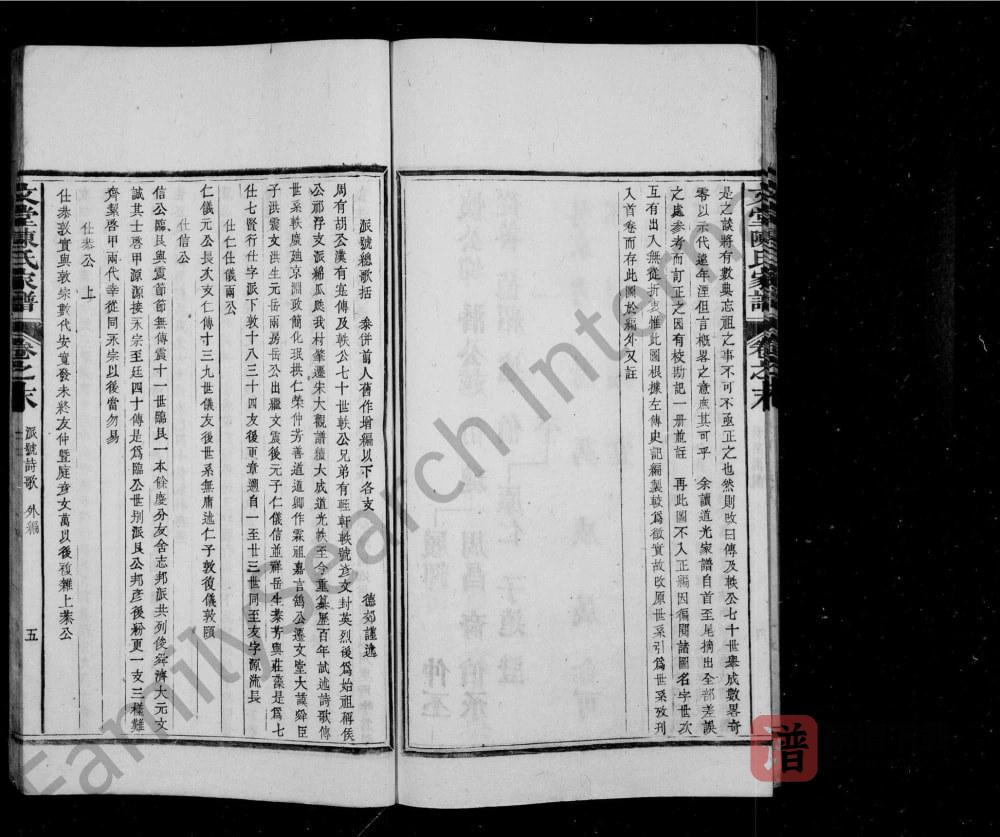 文堂陳氏家譜 卷之末
是之談將有數典忘祖之事不可不亟正之也然則改曰傳及軼公七十世舉成數畧奇
零以示代遠年湮但言概畧之意庶其可乎 余讀道光家譜自首至尾摘出全部差誤
之處參考而訂正之因有校勘記一冊並註 再此圖不入正編因徧閱諸圖名字世次
互有出入無從折衷惟此圖根據左傳史記編製較為徵實故改原世系引為世系攷刊
入首卷而存此圖於編外又註
派號總歌括 泰併前人舊作增編以下各支 德郊謹述
周有胡公漢有寔傳及軼公七十世軼公兄弟有 軒軼號彥文封英烈後為始祖稱侯
公祁浮支派綿瓜瓞我村肇遷朱大觀譜積大成道光軼至今重纂歷百年試述詩歌傳
世系軼廣廸京淵政簡化珉拱仁榮仲芳善道道卿作霖祖嘉言鴿公遷文堂大謨舜臣
子洪震文洪生元岳兩房岳公出繼文震後元子仁儀信並祥岳生泰芳與莊藻是為七
仕七賢行仕字派下敦十八三十四友後更章適自一至廿三世同至友字源流長
仕仁仕儀兩公
仁儀元公長次支仁傳寸三九世儀友後世系無庸述仁子敦復儀敦頤
仕信公
信公臨艮與震節節無傳震十一世臨艮一本餘慶分友舍志邦派共列俊舜濟大元文
誠其士啓甲源源接永宗至廷四十傳是為臨公世別派艮公邦彥後粉更一支三樣難
齊絜啓甲兩代幸從同永宗以後當勿易
仕泰公 上
仕泰敦實與敦宗數代安寬發未終友仲暨庭彥文萬以後複雜上泰公
文堂陳氏家譜 卷之末 派號詩歌 外編 五
FamilySearch International
譜